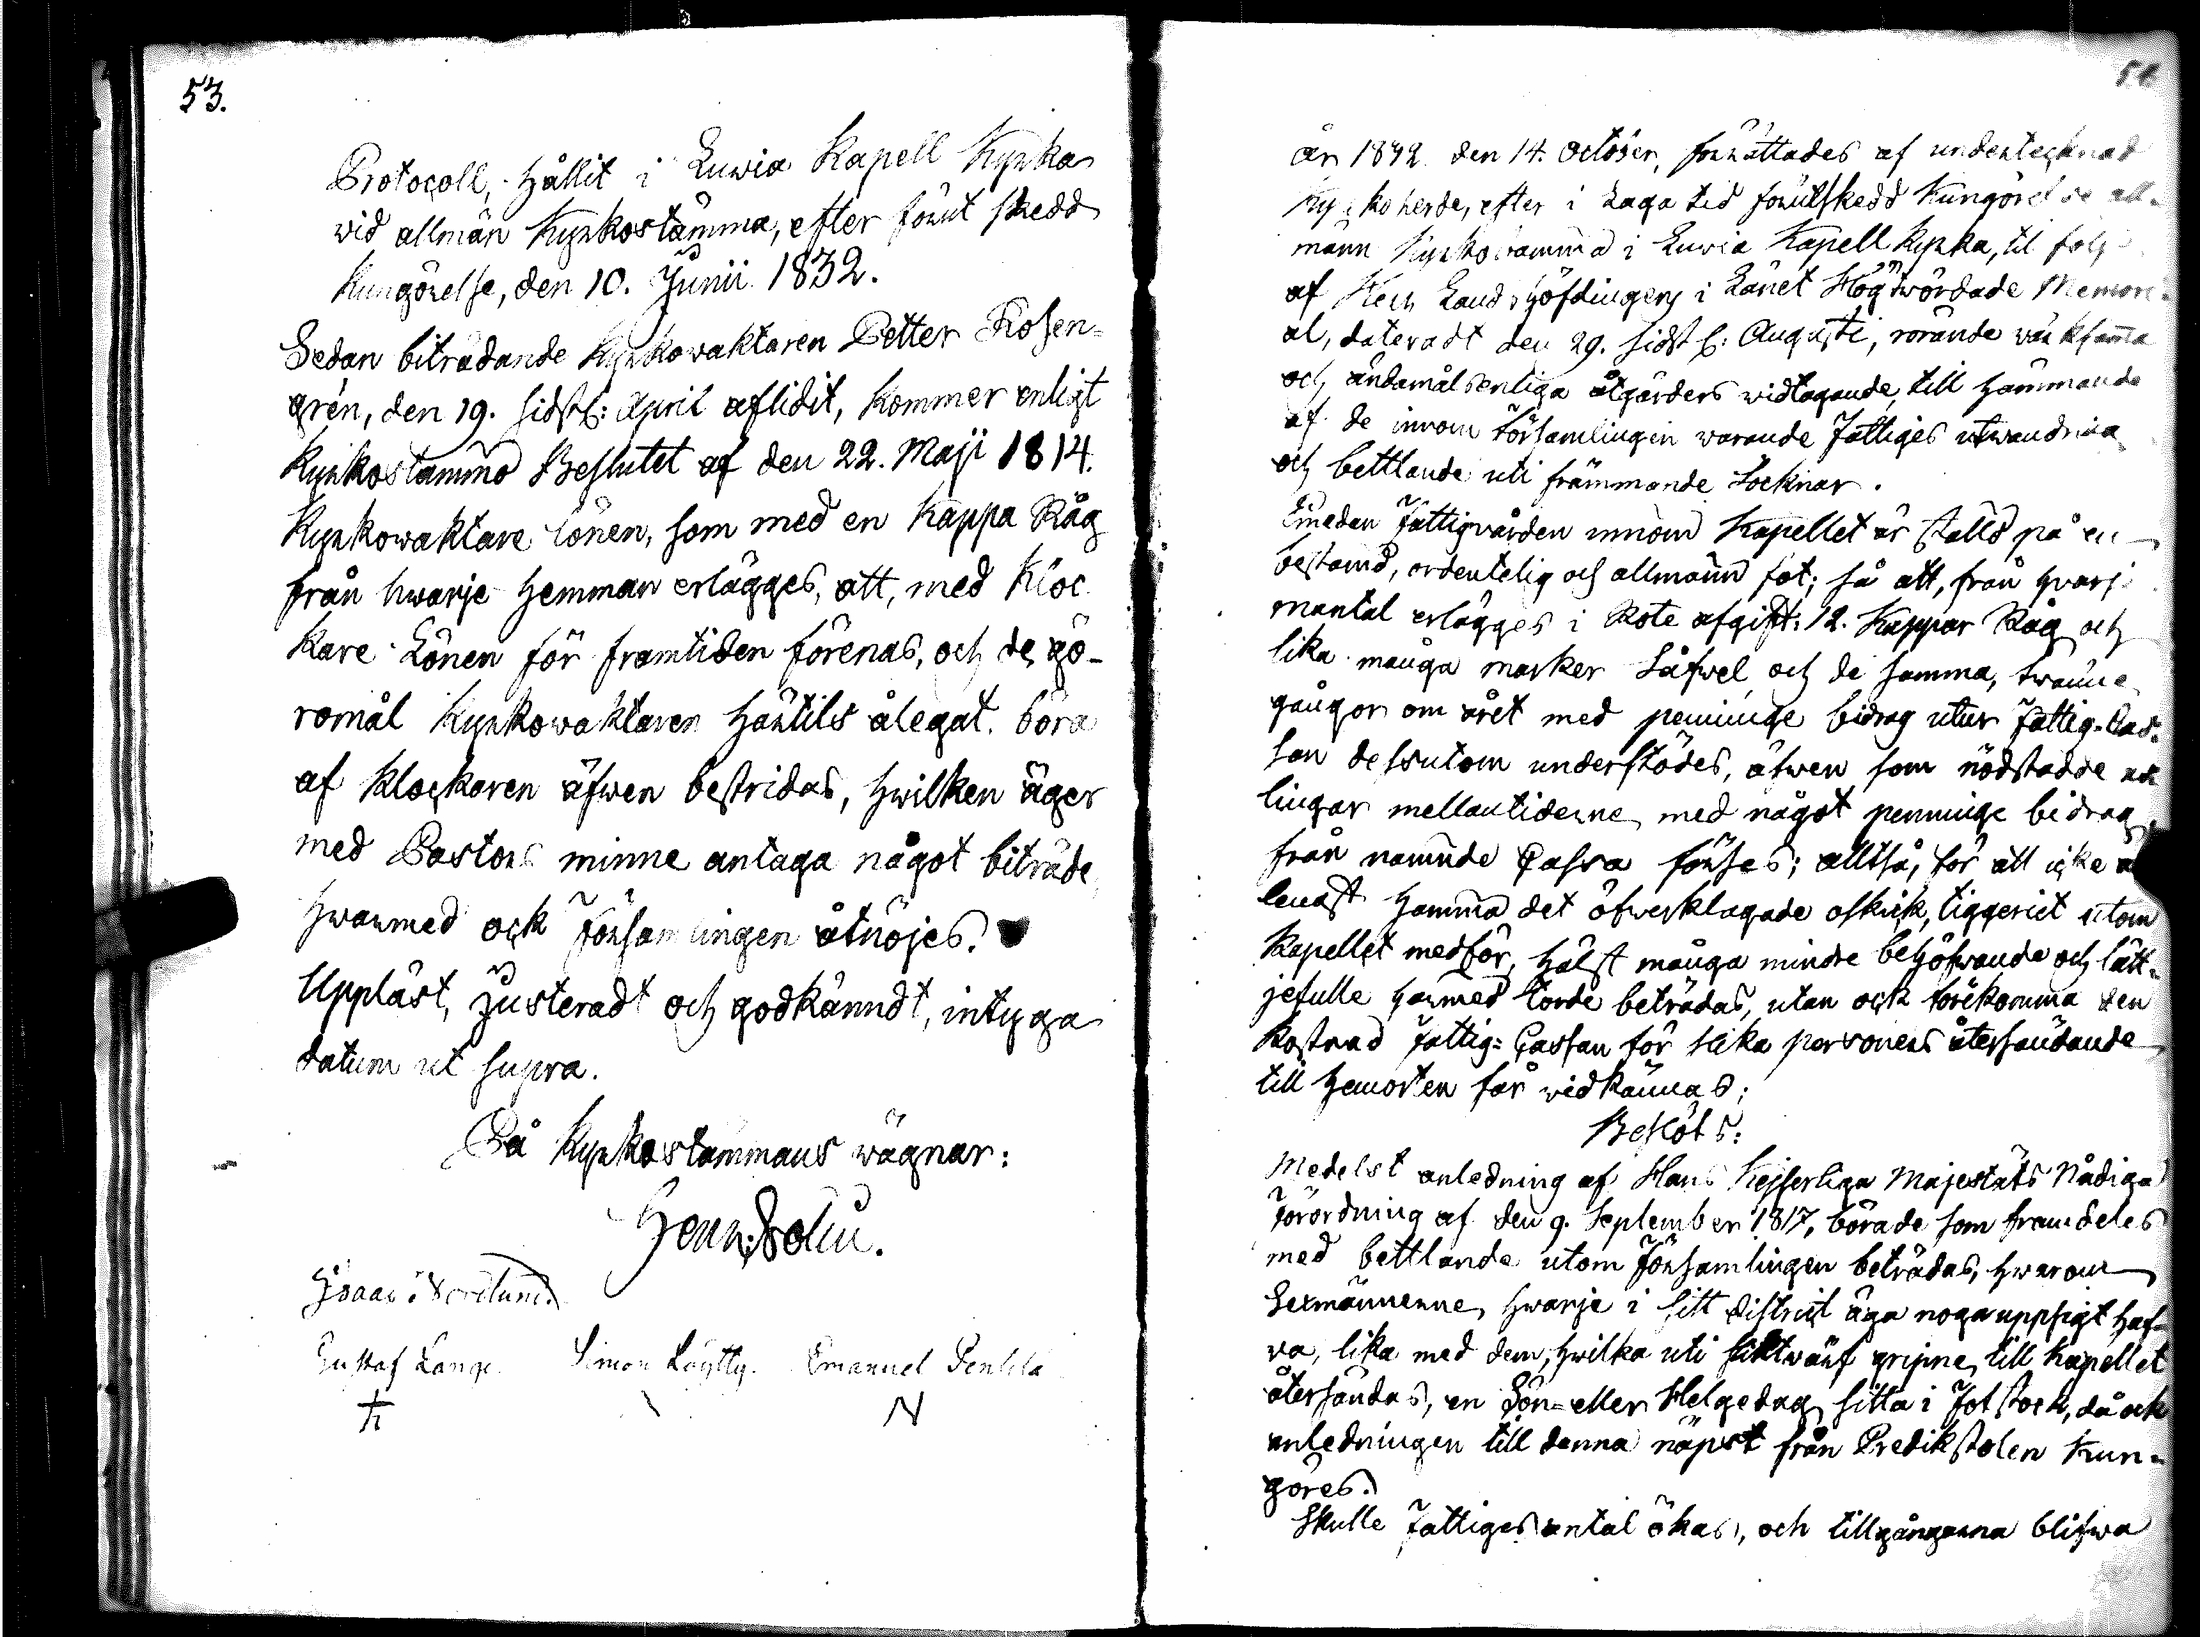 53.
Protocoll, hållit i Luwia Kapell Kyrka
vid allmän Kyrkostämma, efter förut skedd
Kungörelse, den 10. Junii 1832.
Sedan biträdande Kyrkowaktaren Petter Rosen-
grén, den 19. sidstl: April aflidit, kommer enligt
Kyrkostämmo Beslutet af den 22. Maji 1814.
Kyrkowaktare Lönen, som med en Kappa Råg
från hwarje Hemman erlägges, att, med Kloc
kare Lönen för framtiden förenas, och de gö-
romål Kyrkowaktaren härtils ålegat, böra
af Klockaren äfwen bestridas, hwilken äger
med Pastors minne antaga något biträde,
hwarmed ock Församlingen åtnöjes.
Uppläst, Justeradt och godkänndt, intyga
datum ut supra.
På Kyrkostämmans wägnar:
Isaac Nordlund
Gustaf Lang Simon Emanuel Penttilä
N
54
År 1832 den 14. October, förrättades af undertecknad
Kyrkoherde, efter i Laga tid förutskedd Kungörelse all-
männ Kyrkostämma i Luwia Kapell Kyrka, til följe
af Herr Landshöfdingens i Länet Högtwördade Memori-
al, dateradt den 29. sidstl: Augusti, rörande wärksamma
och ändamålsenliga åtgärders widtagande, till hämmande
af de innom Församlingen warande Fattiges utwandring
och bettlande uti främmande Socknar.
Emedan Fattigvården innom Kapellet är ställd på en
bestämd, ordentelig och allmänn fot; så att, från hvarje
mantal erlägges i Rote afgift: 12. Kappar Råg och
lika många marker Såfwel, och de samma, twänne
gånger om året med penninge bidrag utur Fattig-Cas-
san dessutom understödes, äfwen som nödstadde
lingar mellantiderne med något penninge bidrag
från nämnde Cassa förses; alltså, för att icke
lenast hämma det öfwerklagade oskick, tiggeriet utom
Kapellet medför, hälst många mindre behöfwande och lätt-
jefulle härmed torde beträdas, utan ock förekomma den
kostnad Fattig-Cassan för slika personers återsändande
till hemorten får widkännas;
Beslöts:
Medelst anledning af Hans Kejserliga Majestäts Nådiga
Förordning af den 9. September 1817, böra de som framdeles
med bettlande utom Församlingen beträdas, hwarom
Sexmännerne, hwarje i sitt district äga noga uppsigt haf-
va, lika med dem, hwilka uti gripne till Kapellet
återsändas, en Sön- eller Helgedag sitta i Fotstock, då ock
anledningen till denna näpst från Predikstolen Kun-
göres.
Skulle Fattiges antal ökas, och tillgångarna blifwa